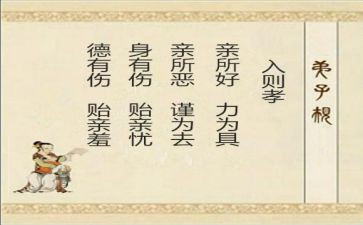 弟子规
入则孝
亲所好 力为具
亲所恶 谨为去
身有伤 贻亲忧
德有伤 贻亲羞